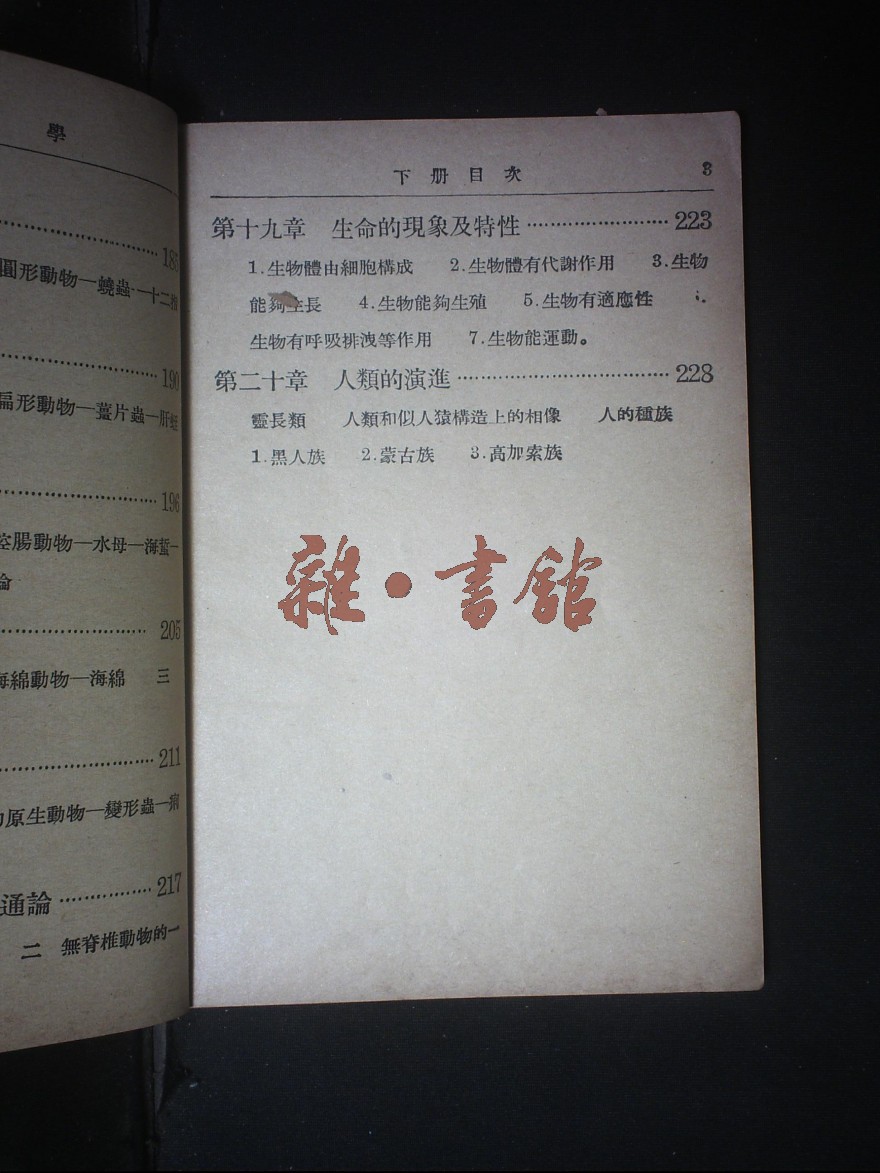 學
185
圓形動物—蟯蟲—十二指
190
扁形動物—薑片蟲—肝蛭
196
腔腸動物—水母—海蜇—
論
205
海綿動物—海綿 三
211
原生動物—變形蟲—瘧
通論 217
二 無脊椎動物的一
下册目次 3
第十九章 生命的現象及特性 223
1.生物體由細胞構成 2.生物體有代謝作用 3.生物
能夠生長 4.生物能夠生殖 5.生物有適應性
生物有呼吸排洩等作用 7.生物能運動。
第二十章 人類的演進 228
靈長類 人類和似人猿構造上的相像 人的種族
1.黑人族 2.蒙古族 3.高加索族
雜·書館